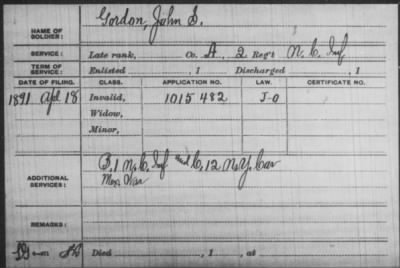 NAME OF SOLDIER: Gordon, John S.
SERVICE: Late rank, Co. A, 2 Reg't N.C. Inf
TERM OF SERVICE: Enlisted , 1 Discharged , 1
DATE OF FILING. CLASS. APPLICATION NO. LAW. CERTIFICATE NO.
1891 Apl 18 Invalid, 1015 482 J-O
Widow,
Minor,
ADDITIONAL SERVICES: B, 1 N.C. Inf and C, 12 N.Y. Cav
Mex. War
REMARKS:
Died , 1 , at